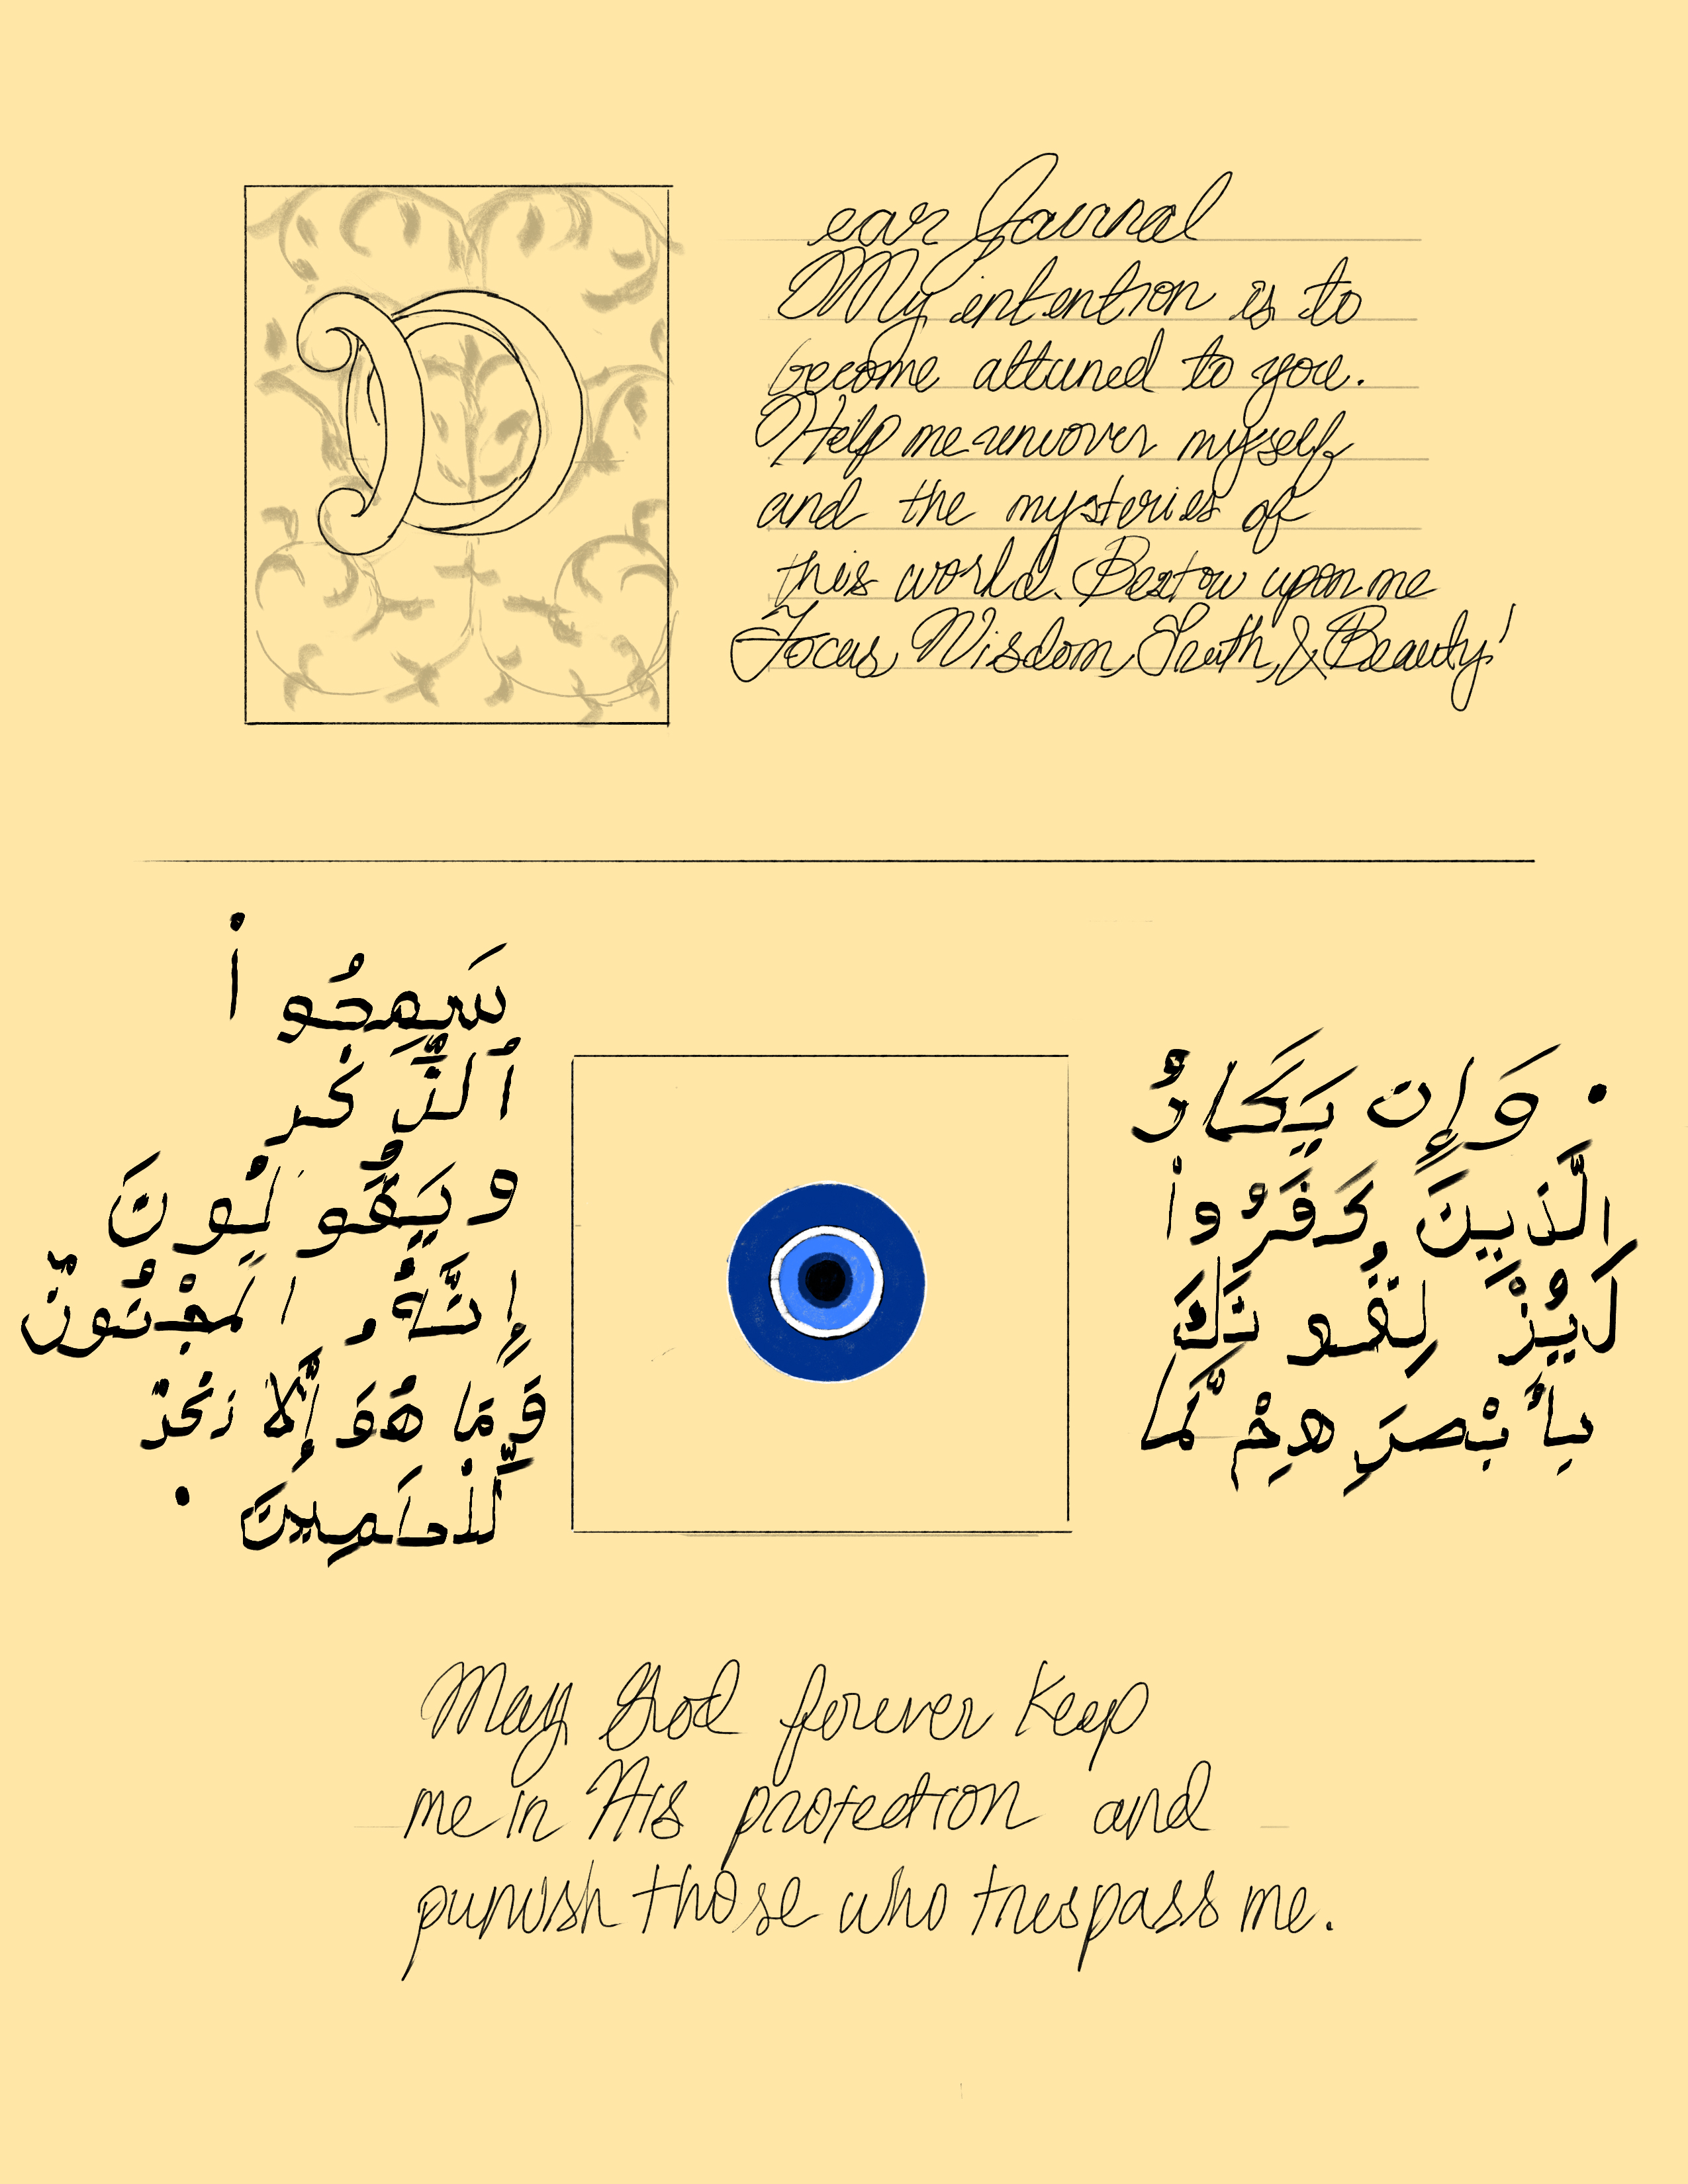 Dear Journal
My intention is to
become attuned to you.
Help me uncover myself
and the mysteries of
this world. Bestow upon me
Focus, Wisdom, Truth, & Beauty!
وَإِن يَكَادُ
الَّذِينَ كَفَرُواْ
لَيُزْلِقُونَكَ
بِأَبْصَرِهِمْ لَمَّا
سَمِعُواْ
ٱلذِّكْر
وَيَقُولُونَ
إِنَّهُۥ لَمَجْنُونٌ
وَمَا هُوَ إِلَّا ذِكْرٌ
لِّلْعَلَمِينَ
May God forever keep
me in His protection and
punish those who trespass me.